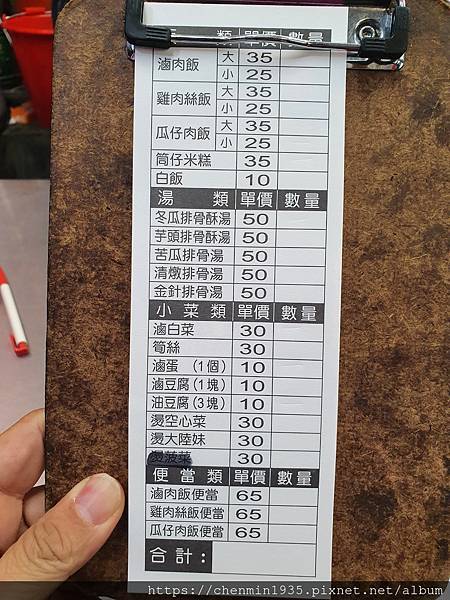 類 單價 數量
滷肉飯 大 35
小 25
雞肉絲飯 大 35
小 25
瓜仔肉飯 大 35
小 25
筒仔米糕 35
白飯 10
湯類 單價 數量
冬瓜排骨酥湯 50
芋頭排骨酥湯 50
苦瓜排骨湯 50
清燉排骨湯 50
金針排骨湯 50
小菜類 單價 數量
滷白菜 30
筍絲 30
滷蛋 (1個) 10
滷豆腐(1塊) 10
油豆腐(3塊) 10
燙空心菜 30
燙大陸妹 30
燙菠菜 30
便當類 單價 數量
滷肉飯便當 65
雞肉絲飯便當 65
瓜仔肉飯便當 65
合計:
https://chenmin1935.pixnet.net/album